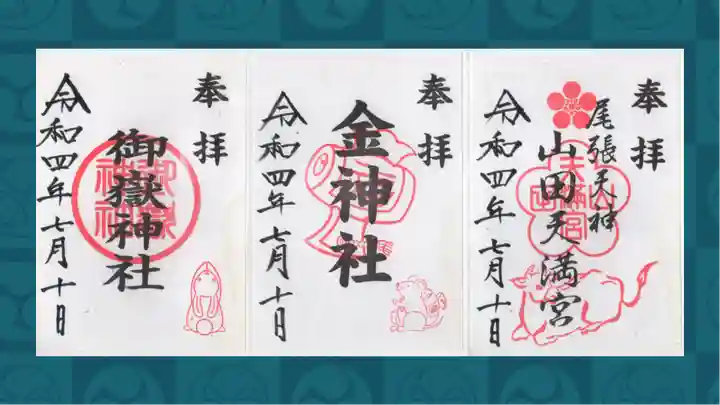 奉拝
尾張天神
山田天満宮
令和四年七月十日
奉拝
金神社
令和四年七月十日
奉拝
御嶽神社
令和四年七月十日
山田天満宮
御嶽神社